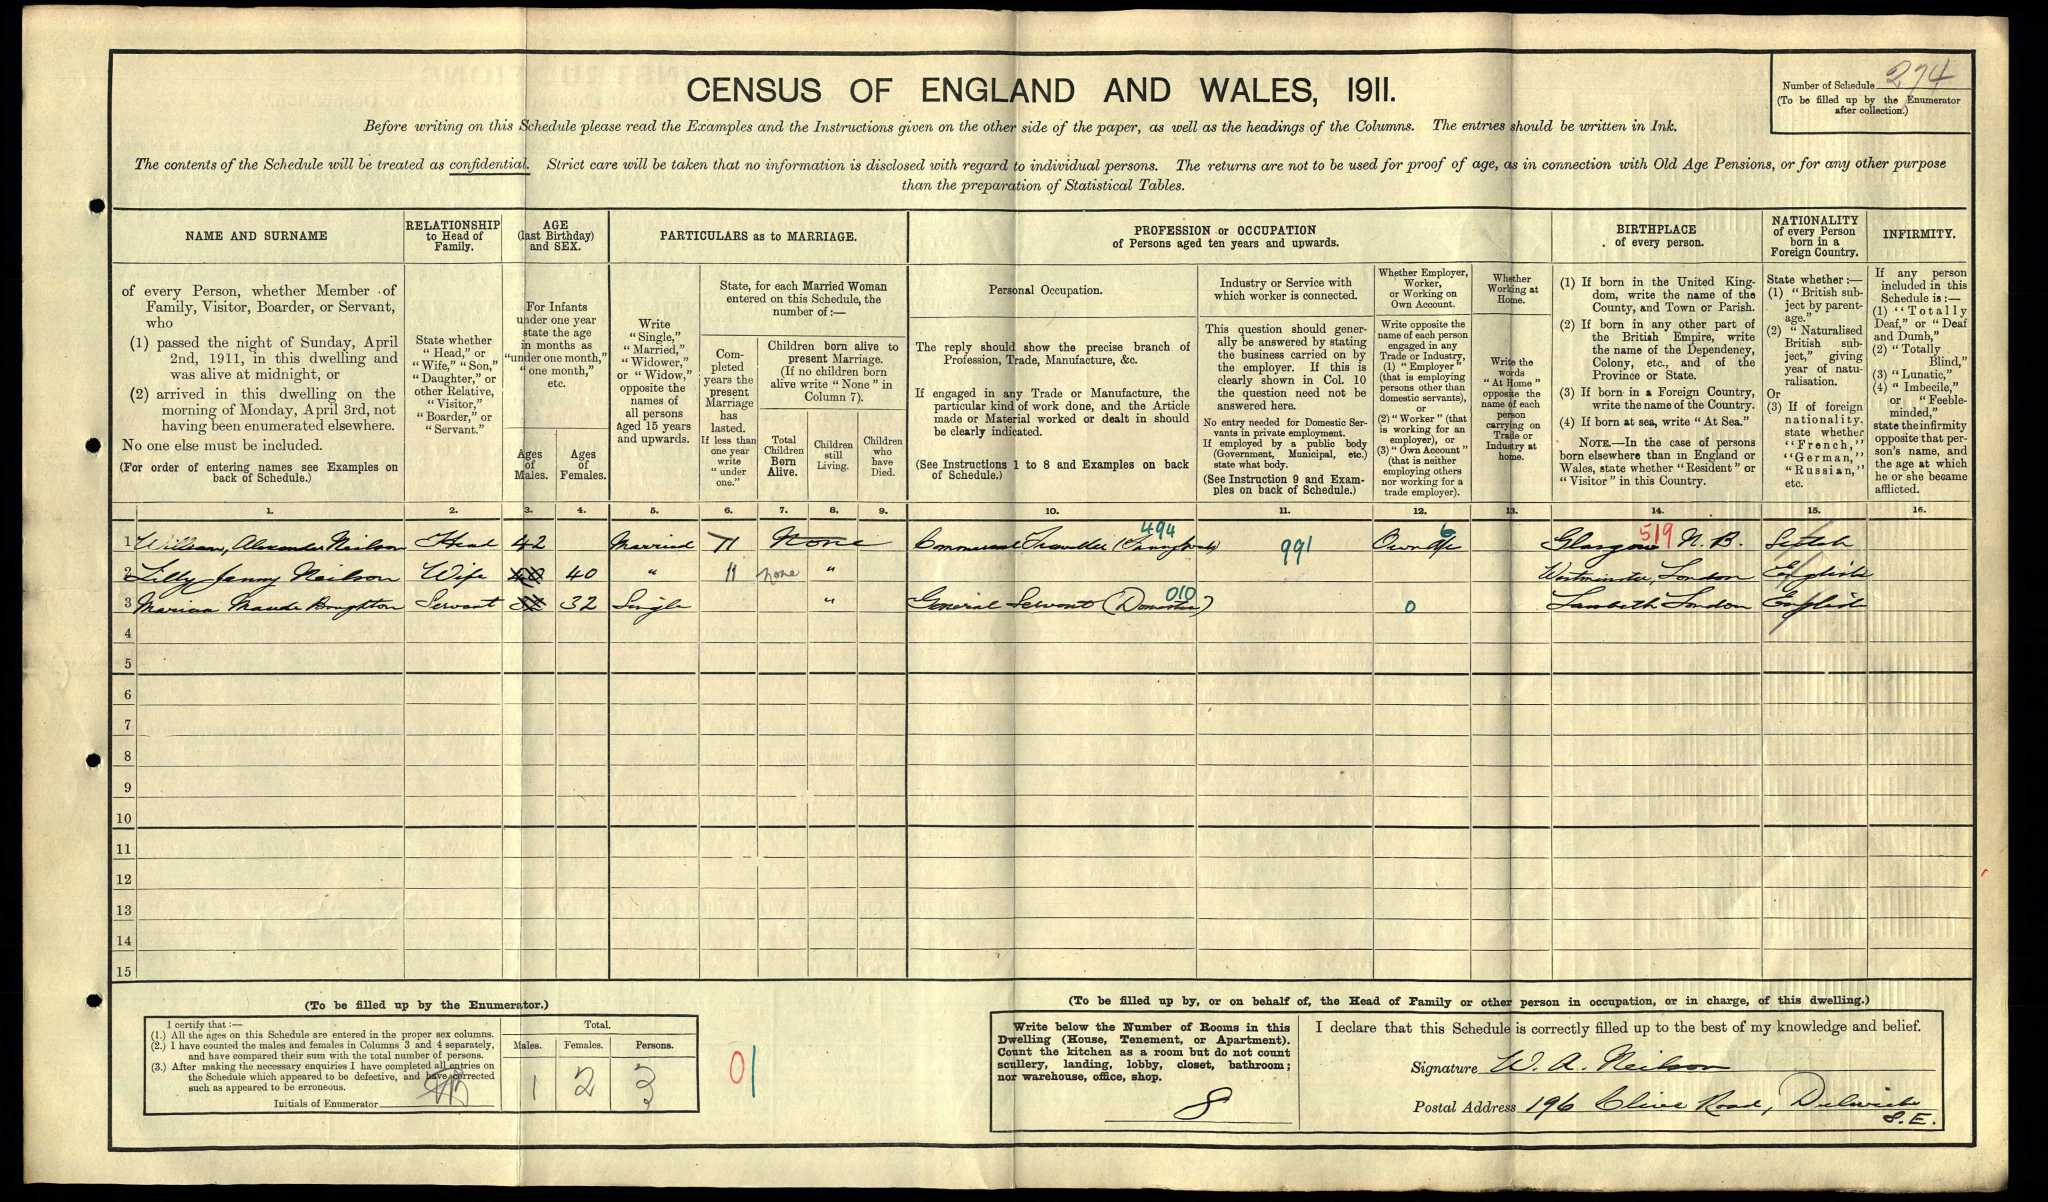 CENSUS OF ENGLAND AND WALES, 1911.
Number of Schedule 274
(To be filled up by the Enumerator
after collection.)
Before writing on this Schedule please read the Examples and the Instructions given on the other side of the paper, as well as the headings of the Columns. The entries should be written in Ink.
The contents of the Schedule will be treated as confidential. Strict care will be taken that no information is disclosed with regard to individual persons. The returns are not to be used for proof of age, as in connection with Old Age Pensions, or for any other purpose
than the preparation of Statistical Tables.
NAME AND SURNAME
of every Person, whether Member of
Family, Visitor, Boarder, or Servant,
who
(1) passed the night of Sunday, April
2nd, 1911, in this dwelling and
was alive at midnight, or
(2) arrived in this dwelling on the
morning of Monday, April 3rd, not
having been enumerated elsewhere.
No one else must be included.
(For order of entering names see Examples on
back of Schedule.)
RELATIONSHIP
to Head of
Family.
State whether
"Head," or
"Wife," "Son,"
"Daughter," or
other Relative,
"Visitor,"
"Boarder," or
"Servant."
AGE
(last Birthday)
and SEX.
For Infants
under one year
state the age
in months as
"under one month,"
"one month,"
etc.
Ages
of
Males.
Ages
of
Females.
PARTICULARS as to MARRIAGE.
Write
"Single,"
"Married,"
"Widower,"
or "Widow,"
opposite the
names of
all persons
aged 15 years
and upwards.
State, for each Married Woman
entered on this Schedule, the
number of:—
Com-
pleted
years the
present
Marriage
has
lasted.
If less than
one year
write
"under
one."
Children born alive to
present Marriage.
(If no children born
alive write "None" in
Column 7).
Total
Children
Born
Alive.
Children
still
Living.
Children
who
have
Died.
PROFESSION or OCCUPATION
of Persons aged ten years and upwards.
Personal Occupation.
The reply should show the precise branch of
Profession, Trade, Manufacture, &c.
If engaged in any Trade or Manufacture, the
particular kind of work done, and the Article
made or Material worked or dealt in should
be clearly indicated.
(See Instructions 1 to 8 and Examples on back
of Schedule.)
Industry or Service with
which worker is connected.
This question should gener-
ally be answered by stating
the business carried on by
the employer. If this is
clearly shown in Col. 10
the question need not be
answered here.
No entry needed for Domestic Ser-
vants in private employment.
If employed by a public body
(Government, Municipal, etc.)
state what body.
(See Instruction 9 and Exam-
ples on back of Schedule.)
Whether Employer,
Worker,
or Working on
Own Account.
Write opposite the
name of each person
engaged in any
Trade or Industry,
(1) "Employer"
(that is employing
persons other than
domestic servants),
or
(2) "Worker" (that
is working for an
employer), or
(3) "Own Account"
(that is neither
employing others
nor working for a
trade employer).
Whether
Working at
Home.
Write the
words
"At Home"
opposite the
name of each
person
carrying on
Trade or
Industry at
home.
BIRTHPLACE
of every person.
(1) If born in the United King-
dom, write the name of the
County, and Town or Parish.
(2) If born in any other part of
the British Empire, write
the name of the Dependency,
Colony, etc., and of the
Province or State.
(3) If born in a Foreign Country,
write the name of the Country.
(4) If born at sea, write "At Sea."
NOTE.—In the case of persons
born elsewhere than in England or
Wales, state whether "Resident" or
"Visitor" in this Country.
NATIONALITY
of every Person
born in a
Foreign Country.
State whether:—
(1) "British sub-
ject by parent-
age."
(2) "Naturalised
British sub-
ject," giving
year of natu-
ralisation.
Or
(3) If of foreign
nationality,
state whether
"French,"
"German,"
"Russian,"
etc.
INFIRMITY.
If any person
included in this
Schedule is:—
(1) "Totally
Deaf," or "Deaf
and Dumb,"
(2) "Totally
Blind,"
(3) "Lunatic,"
(4) "Imbecile,"
or "Feeble-
minded,"
state the infirmity
opposite that per-
son's name, and
the age at which
he or she became
afflicted.
1. 2. 3. 4. 5. 6. 7. 8. 9. 10. 11. 12. 13. 14. 15. 16.
1 William Alexander Neilson Head 42 Married 11 None Commercial Traveller 494 991 Own a/c 6 Glasgow N.B. 519 Scotch
2 Lilly Jenny Neilson Wife 40 40 " 11 none " Westminster, London English
3 Marian Maude Boughton Servant 32 32 Single " General Servant (Domestic) 010 0 Lambeth London English
4
5
6
7
8
9
10
11
12
13
14
15
(To be filled up by the Enumerator.)
I certify that:—
(1.) All the ages on this Schedule are entered in the proper sex columns.
(2.) I have counted the males and females in Columns 3 and 4 separately,
and have compared their sum with the total number of persons.
(3.) After making the necessary enquiries I have completed all entries on
the Schedule which appeared to be defective, and have corrected
such as appeared to be erroneous.
Initials of Enumerator
Total.
Males. Females. Persons.
1 2 3
01
(To be filled up by, or on behalf of, the Head of Family or other person in occupation, or in charge, of this dwelling.)
Write below the Number of Rooms in this
Dwelling (House, Tenement, or Apartment).
Count the kitchen as a room but do not count
scullery, landing, lobby, closet, bathroom;
nor warehouse, office, shop.
8
I declare that this Schedule is correctly filled up to the best of my knowledge and belief.
Signature W. A. Neilson
Postal Address 196 Clive Road, Dulwich
S.E.